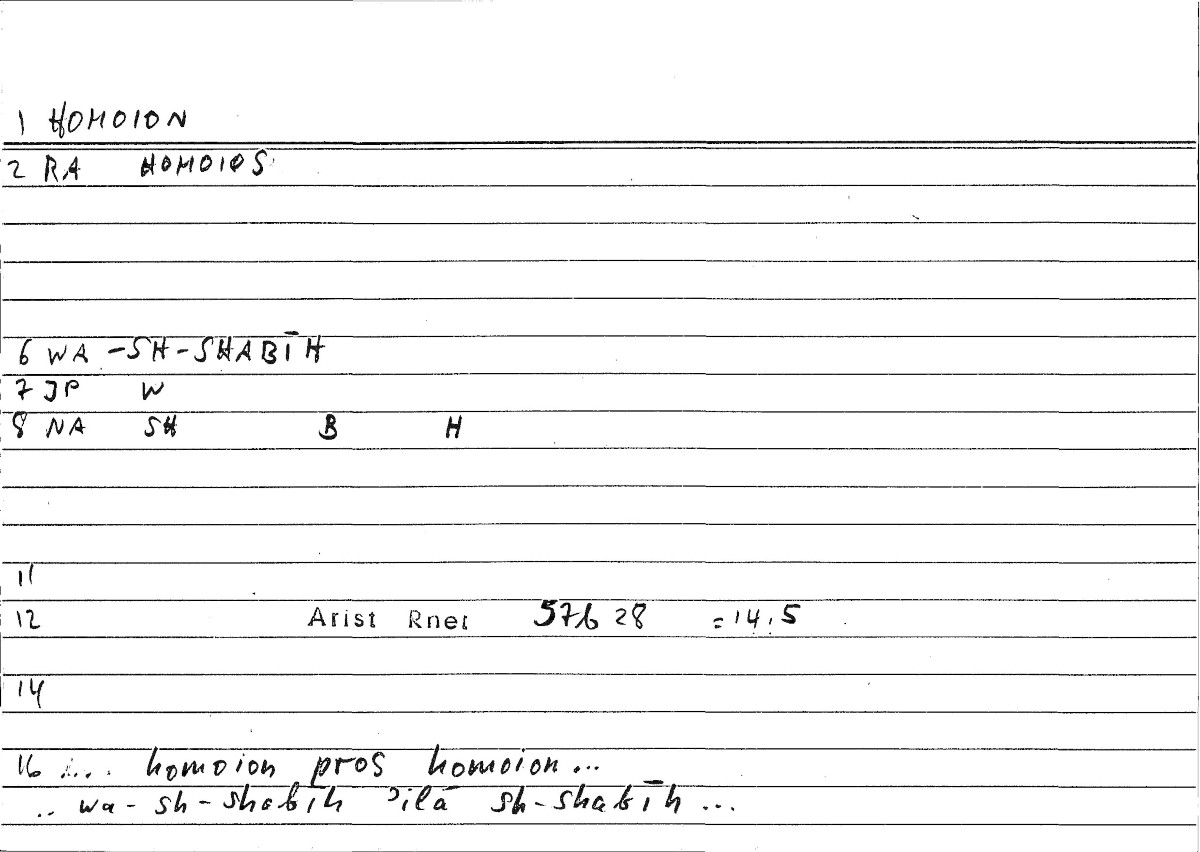 1 HOMOION
2 RA HOMOIOS
6 WA -SH-SHABĪH
7 JP W
8 NA SH B H
11
12 Arist Rhet 57b 28 = 14,5
14
16 .... homoion pros homoion...
.. wa-sh-shabīh ʾilā sh-shabīh ...